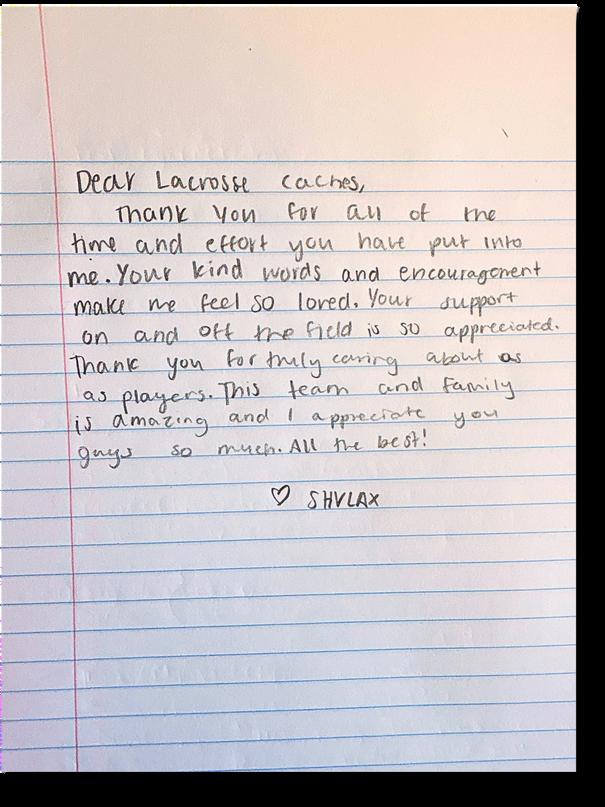 Dear Lacrosse caches,
Thank you for all of the
time and effort you have put into
me. Your kind words and encouragement
make me feel so loved. Your support
on and off the field is so appreciated.
Thank you for truly caring about as
as players. This team and family
is amazing and I appreciate you
guys so much. All the best!
♡ SHVLAX